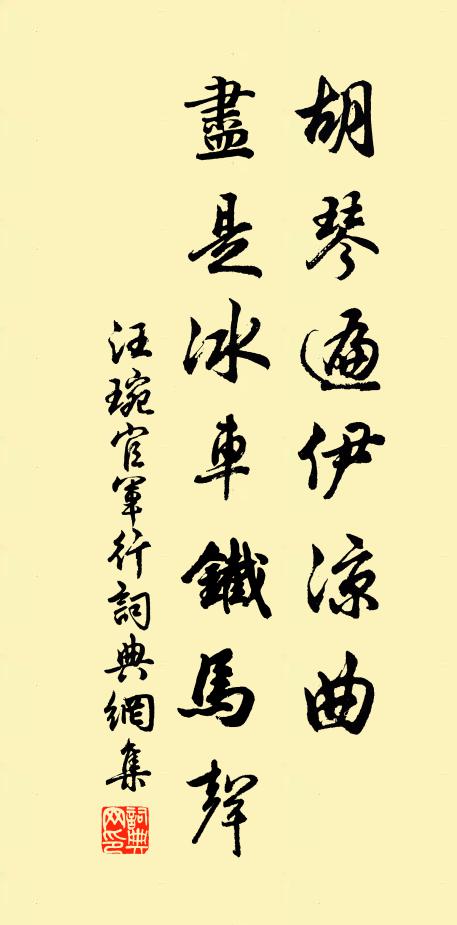 胡琴遍伊凉曲
盡是冰車鐵馬聲
汪琬官軍行詞典網集
詞典網印